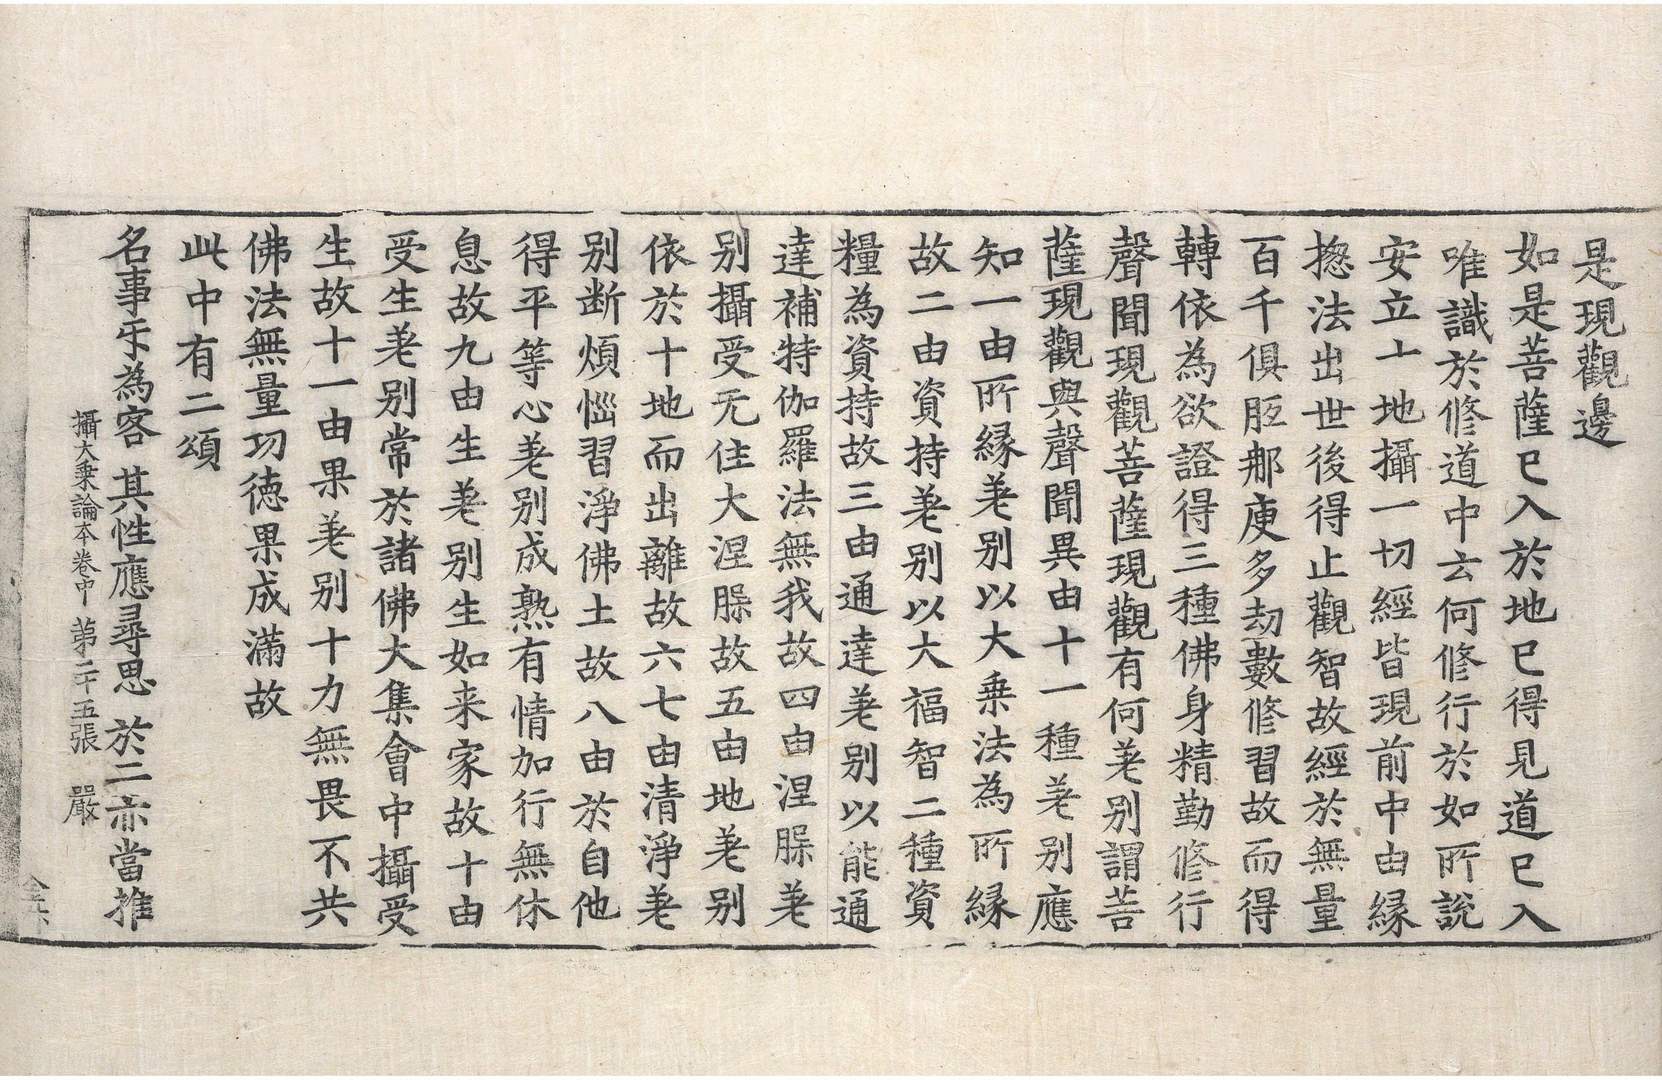 是現觀邊
如是菩薩已入於地已得見道已入
唯識於修道中云何修行於如所說
安立十地攝一切經皆現前中由緣
揔法出世後得止觀智故經於無量
百千俱胝那庾多劫數修習故而得
轉依為欲證得三種佛身精勤修行
聲聞現觀菩薩現觀有何差別謂菩
薩現觀與聲聞異由十一種差別應
知一由所緣差別以大乘法為所緣
故二由資持差別以大福智二種資
糧為資持故三由通達差別以能通
達補特伽羅法無我故四由涅槃差
別攝受无住大涅槃故五由地差別
依於十地而出離故六七由清淨差
別断煩惱習淨佛土故八由於自他
得平等心差別成熟有情加行無休
息故九由生差別生如来家故十由
受生差別常於諸佛大集會中攝受
生故十一由果差別十力無畏不共
佛法無量功徳果成滿故
此中有二頌
名事乎為客 其性應尋思 於二亦當推
攝大乘論本卷中 第二十五張 嚴